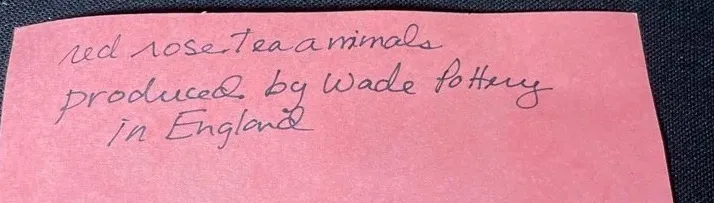 red rose tea animals
produced by Wade Pottery
in England